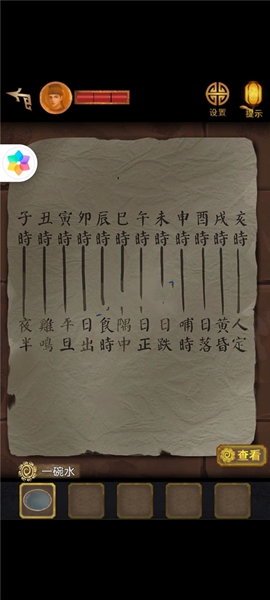 设置
提示
子 丑 寅 卯 辰 巳 午 未 申 酉 戌 亥
時 時 時 時 時 時 時 時 時 時 時 時
夜 雞 平 日 食 隅 日 日 哺 日 黄 人
半 鳴 旦 出 時 中 正 跌 時 落 昏 定
查看
一碗水